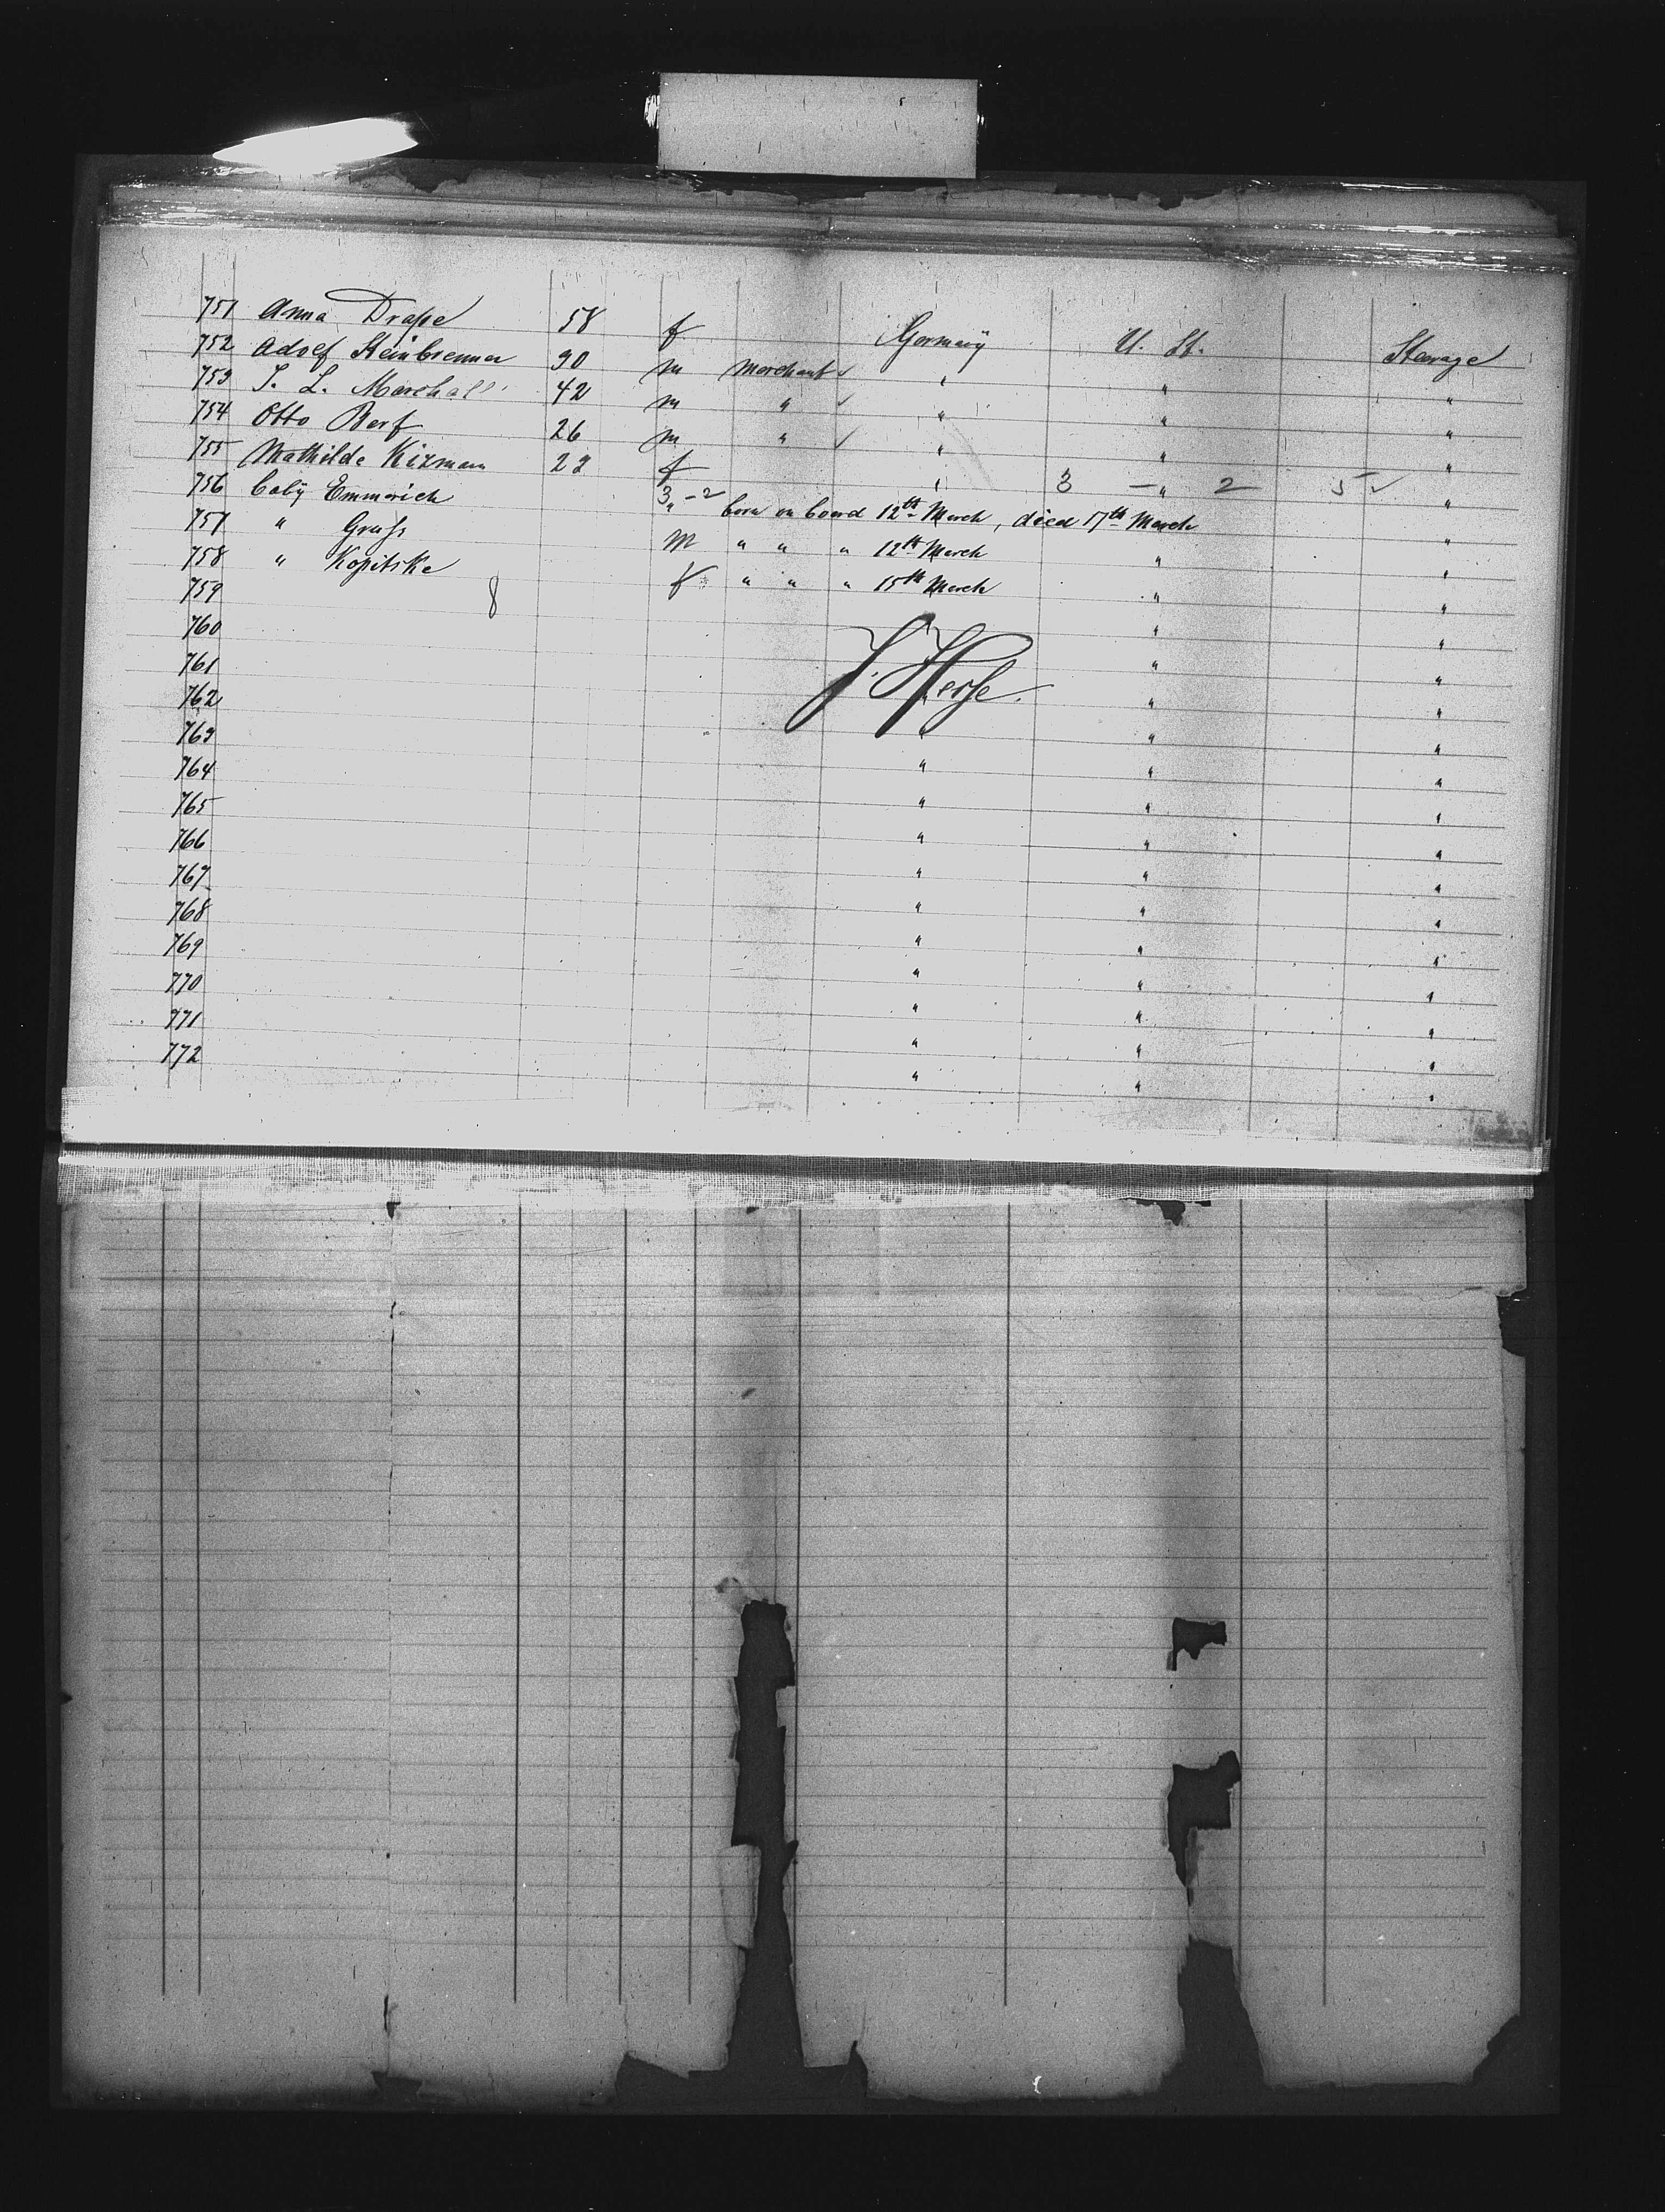 751 Anna Drape 58 f Germany U. St. Steerage
752 Adolf Steinbrenner 30 m Merchant ✓ " " "
753 J. L. Marshall 42 m " ✓ " " "
754 Otto Berf 26 m " ✓ " " "
755 Mathilde Kizman 23 f " 3 — " 2 5 ✓ "
756 baby Emmerich 3 " — 2 born on board 12th March, died 17th March "
757 " Gruss m " " " 12th March " "
758 " Kopitske f " " " 15th March " "
759 8 " "
760 " "
761 " "
762 " "
763 " " "
764 " " "
765 " " "
766 " " "
767 " " "
768 " " "
769 " " "
770 " " "
771 " " "
772 " " "